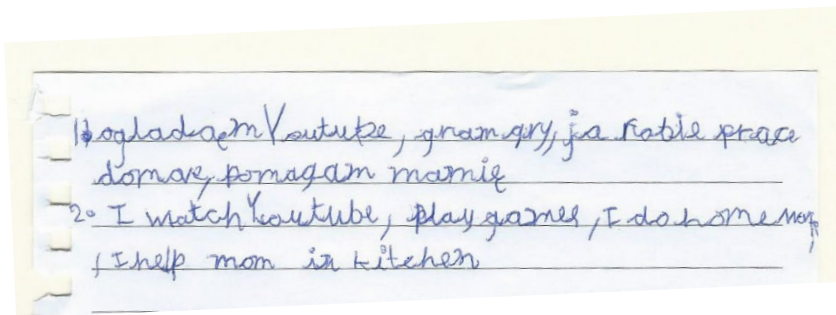 1. ogladaem Youtube, gram gry, ja robie prace
domowe, pomagam mamię
2. I watch Youtube, play games, I do home
, I help mom in kitchen